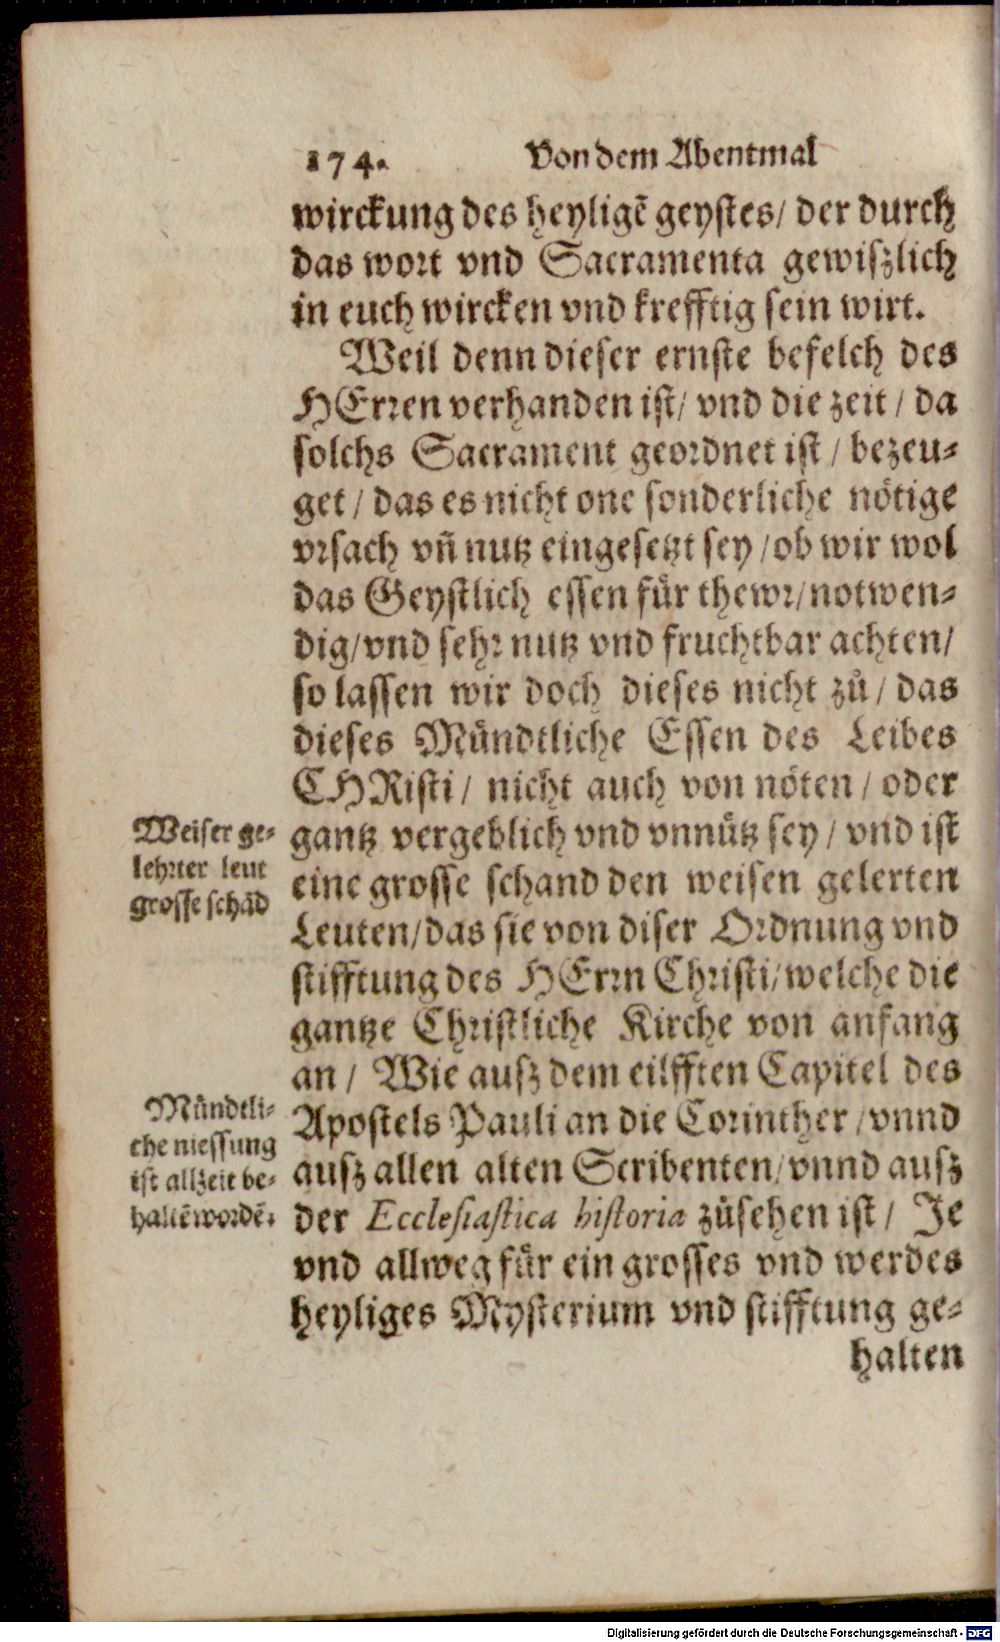 174. Von dem Abentmal
wirckung des heyligē geystes/ der durch
das wort vnd Sacramenta gewiszlich
in euch wircken vnd krefftig sein wirt.
Weil denn dieser ernste befelch des
HErren verhanden ist/ vnd die zeit / da
solchs Sacrament geordnet ist / bezeu-
get / das es nicht one sonderliche nötige
vrsach vn̄ nutz eingesetzt sey / ob wir wol
das Geystlich essen für thewr/ notwen-
dig/ vnd sehr nutz vnd fruchtbar achten/
so lassen wir doch dieses nicht zů / das
dieses Mündtliche Essen des Leibes
CHRisti / nicht auch von nöten / oder
gantz vergeblich vnd vnnütz sey / vnd ist
eine grosse schand den weisen gelerten
Leuten/ das sie von diser Ordnung vnd
stifftung des HErrn Christi/ welche die
gantze Christliche Kirche von anfang
an / Wie ausz dem eilfften Capitel des
Apostels Pauli an die Corinther / vnnd
ausz allen alten Scribenten/ vnnd ausz
der Ecclesiastica historia zůsehen ist / Je
vnd allweg für ein grosses vnd werdes
heyliges Mysterium vnd stifftung ge-
halten
Weiser ge-
lehrter leut
grosse schād
Mündtli-
che niessung
ist allzeit be-
haltē wordē.
Digitalisierung gefördert durch die Deutsche Forschungsgemeinschaft - DFG